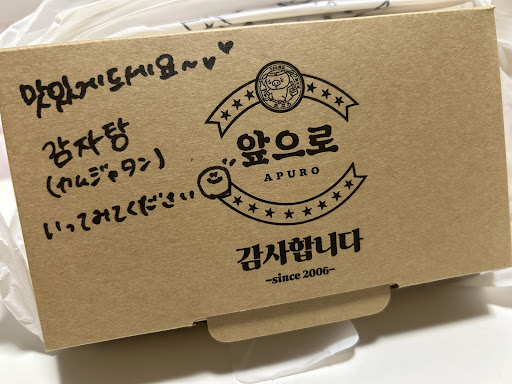 맛있게드세요~
감자탕
(カムジャタン)
いってみてください
앞으로
APURO
감사합니다
-since 2006-